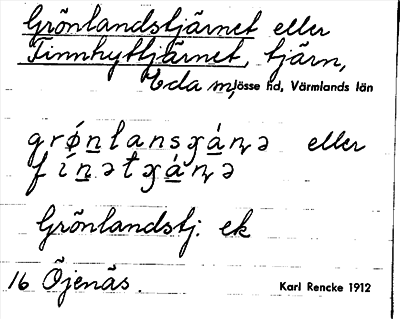 Grönlandstjärnet eller
Finnhyttjärnet, tjärn,
Eda m, Jösse hd, Värmlands län
grǿn̲lansɣá̲ɳə eller
fín̲ətɣá̲ɳə
Grönlandstj: ek
16 Öjenäs. Karl Rencke 1912